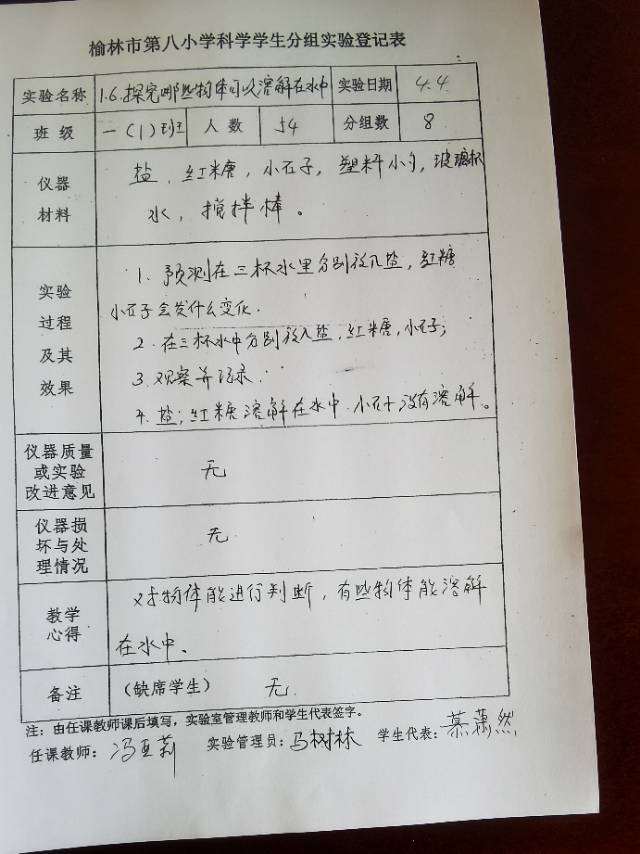 榆林市第八小学科学学生分组实验登记表
实验名称 1.6.探究哪些物体可以溶解在水中 实验日期 4.4
班级 一(1)班 人数 54 分组数 8
仪器材料 盐、红糖,小石子,塑料小勺,玻璃杯
水,搅拌棒。
实验过程及其效果 1. 预测在三杯水里分别放入盐,红糖
小石子会发什么变化.
2. 在三杯水中分别放入盐,红糖,小石子;
3. 观察并记录.
4. 盐,红糖溶解在水中.小石子没有溶解。
仪器质量或实验改进意见 无
仪器损坏与处理情况 无
教学心得 对物体能进行判断,有些物体能溶解
在水中、
备注 (缺席学生) 无.
注:由任课教师课后填写,实验室管理教师和学生代表签字。
任课教师:冯亚莉 实验管理员:马树林 学生代表:慕萧然